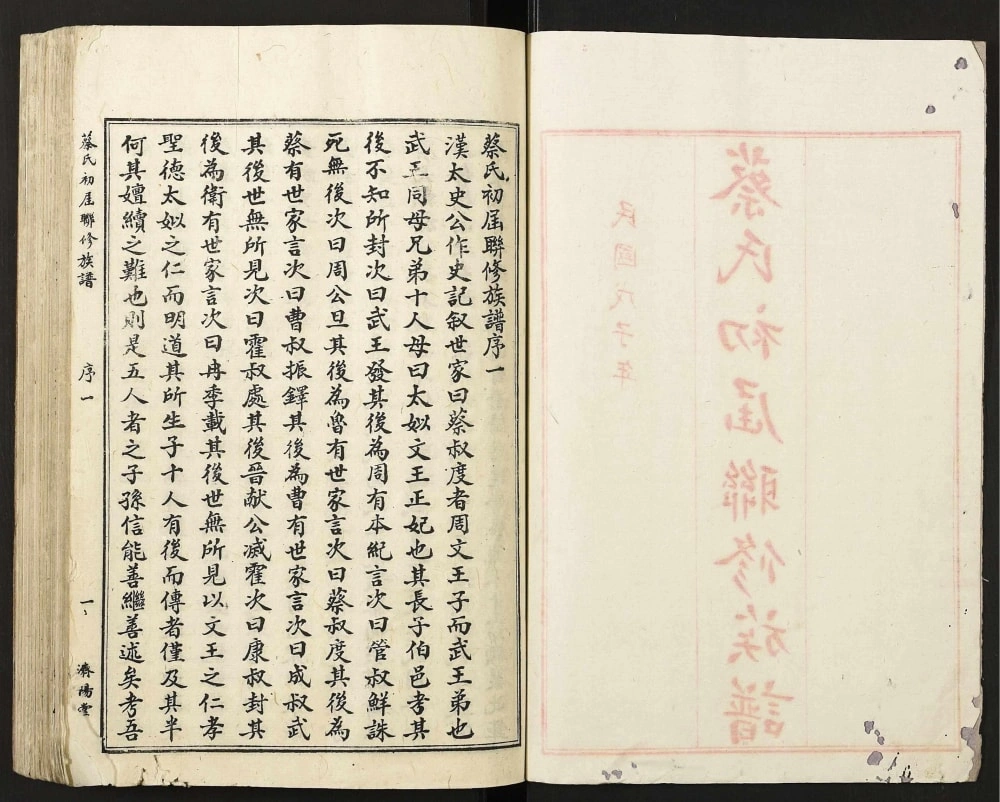 蔡氏初屆聯修族譜
民國戊子年
蔡氏初屆聯修族譜序一
漢太史公作史記叙世家曰蔡叔度者周文王子而武王弟也
武王同母兄弟十人母曰太姒文王正妃也其長子伯邑考其
後不知所封次曰武王發其後為周有本紀言次曰管叔鮮誅
死無後次曰周公旦其後為魯有世家言次曰蔡叔度其後為
蔡有世家言次曰曹叔振鐸其後為曹有世家言次曰成叔武
其後世無所見次曰霍叔處其後晉献公滅霍次曰康叔封其
後為衛有世家言次曰冉季載其後世無所見以文王之仁孝
聖德太姒之仁而明道其所生子十人有後而傳者僅及其半
何其嬗續之難也則是五人者之子孫信能善繼善述矣考吾
蔡氏初屆聯修族譜
序一
一
濟陽堂